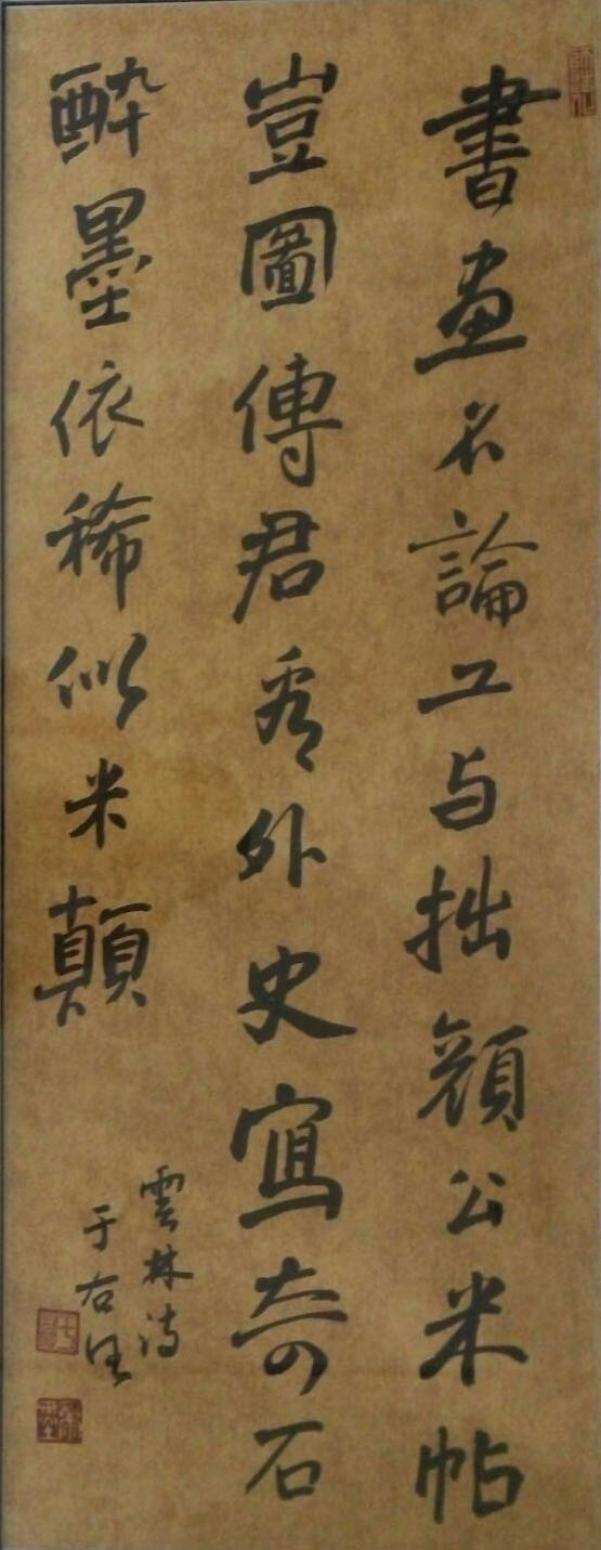 書畫不論工与拙顔公米帖
豈圖傳君看外史寫奇石
酔墨依稀似米顛
雲林詩
于右任